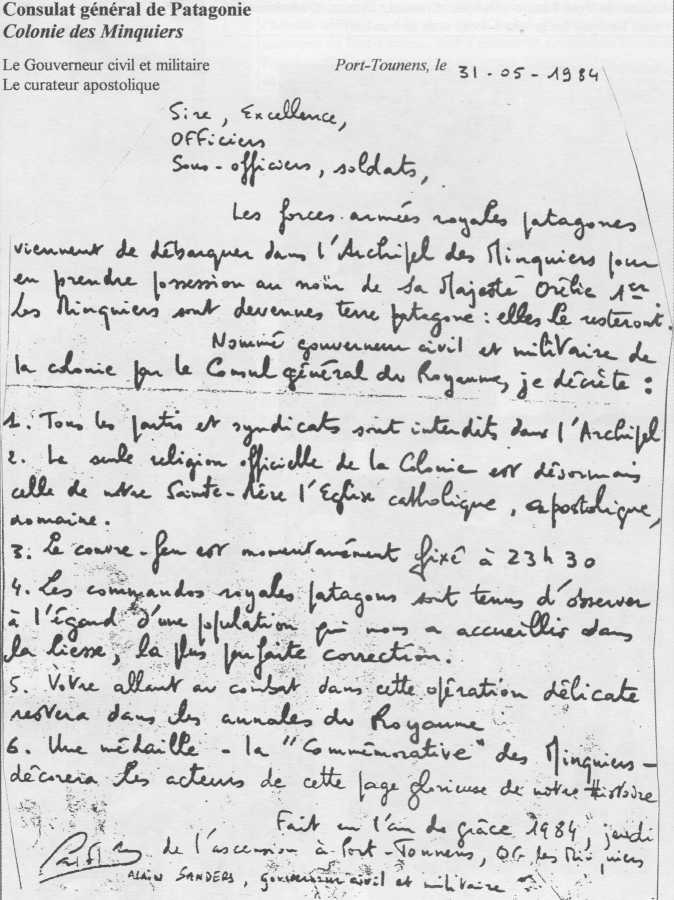 Consulat général de Patagonie
Colonie des Minquiers
Le Gouverneur civil et militaire
Le curateur apostolique
Port-Tounens, le 31-05-1984
Sire, Excellence,
Officiers
Sous-officiers, soldats,
Les forces armées royales patagones
viennent de débarquer dans l'Archipel des Minquiers pour
en prendre possession au nom de Sa Majesté Orélie 1er.
Les Minquiers sont devenues terre patagone : elles le resteront.
Nommé gouverneur civil et militaire de
la colonie par le Consul général du Royaume, je décrète :
1. Tous les partis et syndicats sont interdits dans l'Archipel
2. La seule religion officielle de la Colonie est désormais
celle de notre Sainte-Mère l'Eglise catholique, apostolique,
romaine.
3. Le couvre-feu est momentanément fixé à 23h30
4. Les commandos royales patagons sont tenus d'observer
à l'égard d'une population qui nous a accueillis dans
la liesse, la plus parfaite correction.
5. Votre allant au combat dans cette opération délicate
restera dans les annales du Royaume
6. Une médaille - la "Commémorative" des Minquiers -
décorera les acteurs de cette page glorieuse de notre Histoire
Fait en l'an de grâce 1984, jeudi
de l'ascension à Port-Tounens, QG des Minquiers
ALAIN SANDERS, gouverneur civil et militaire